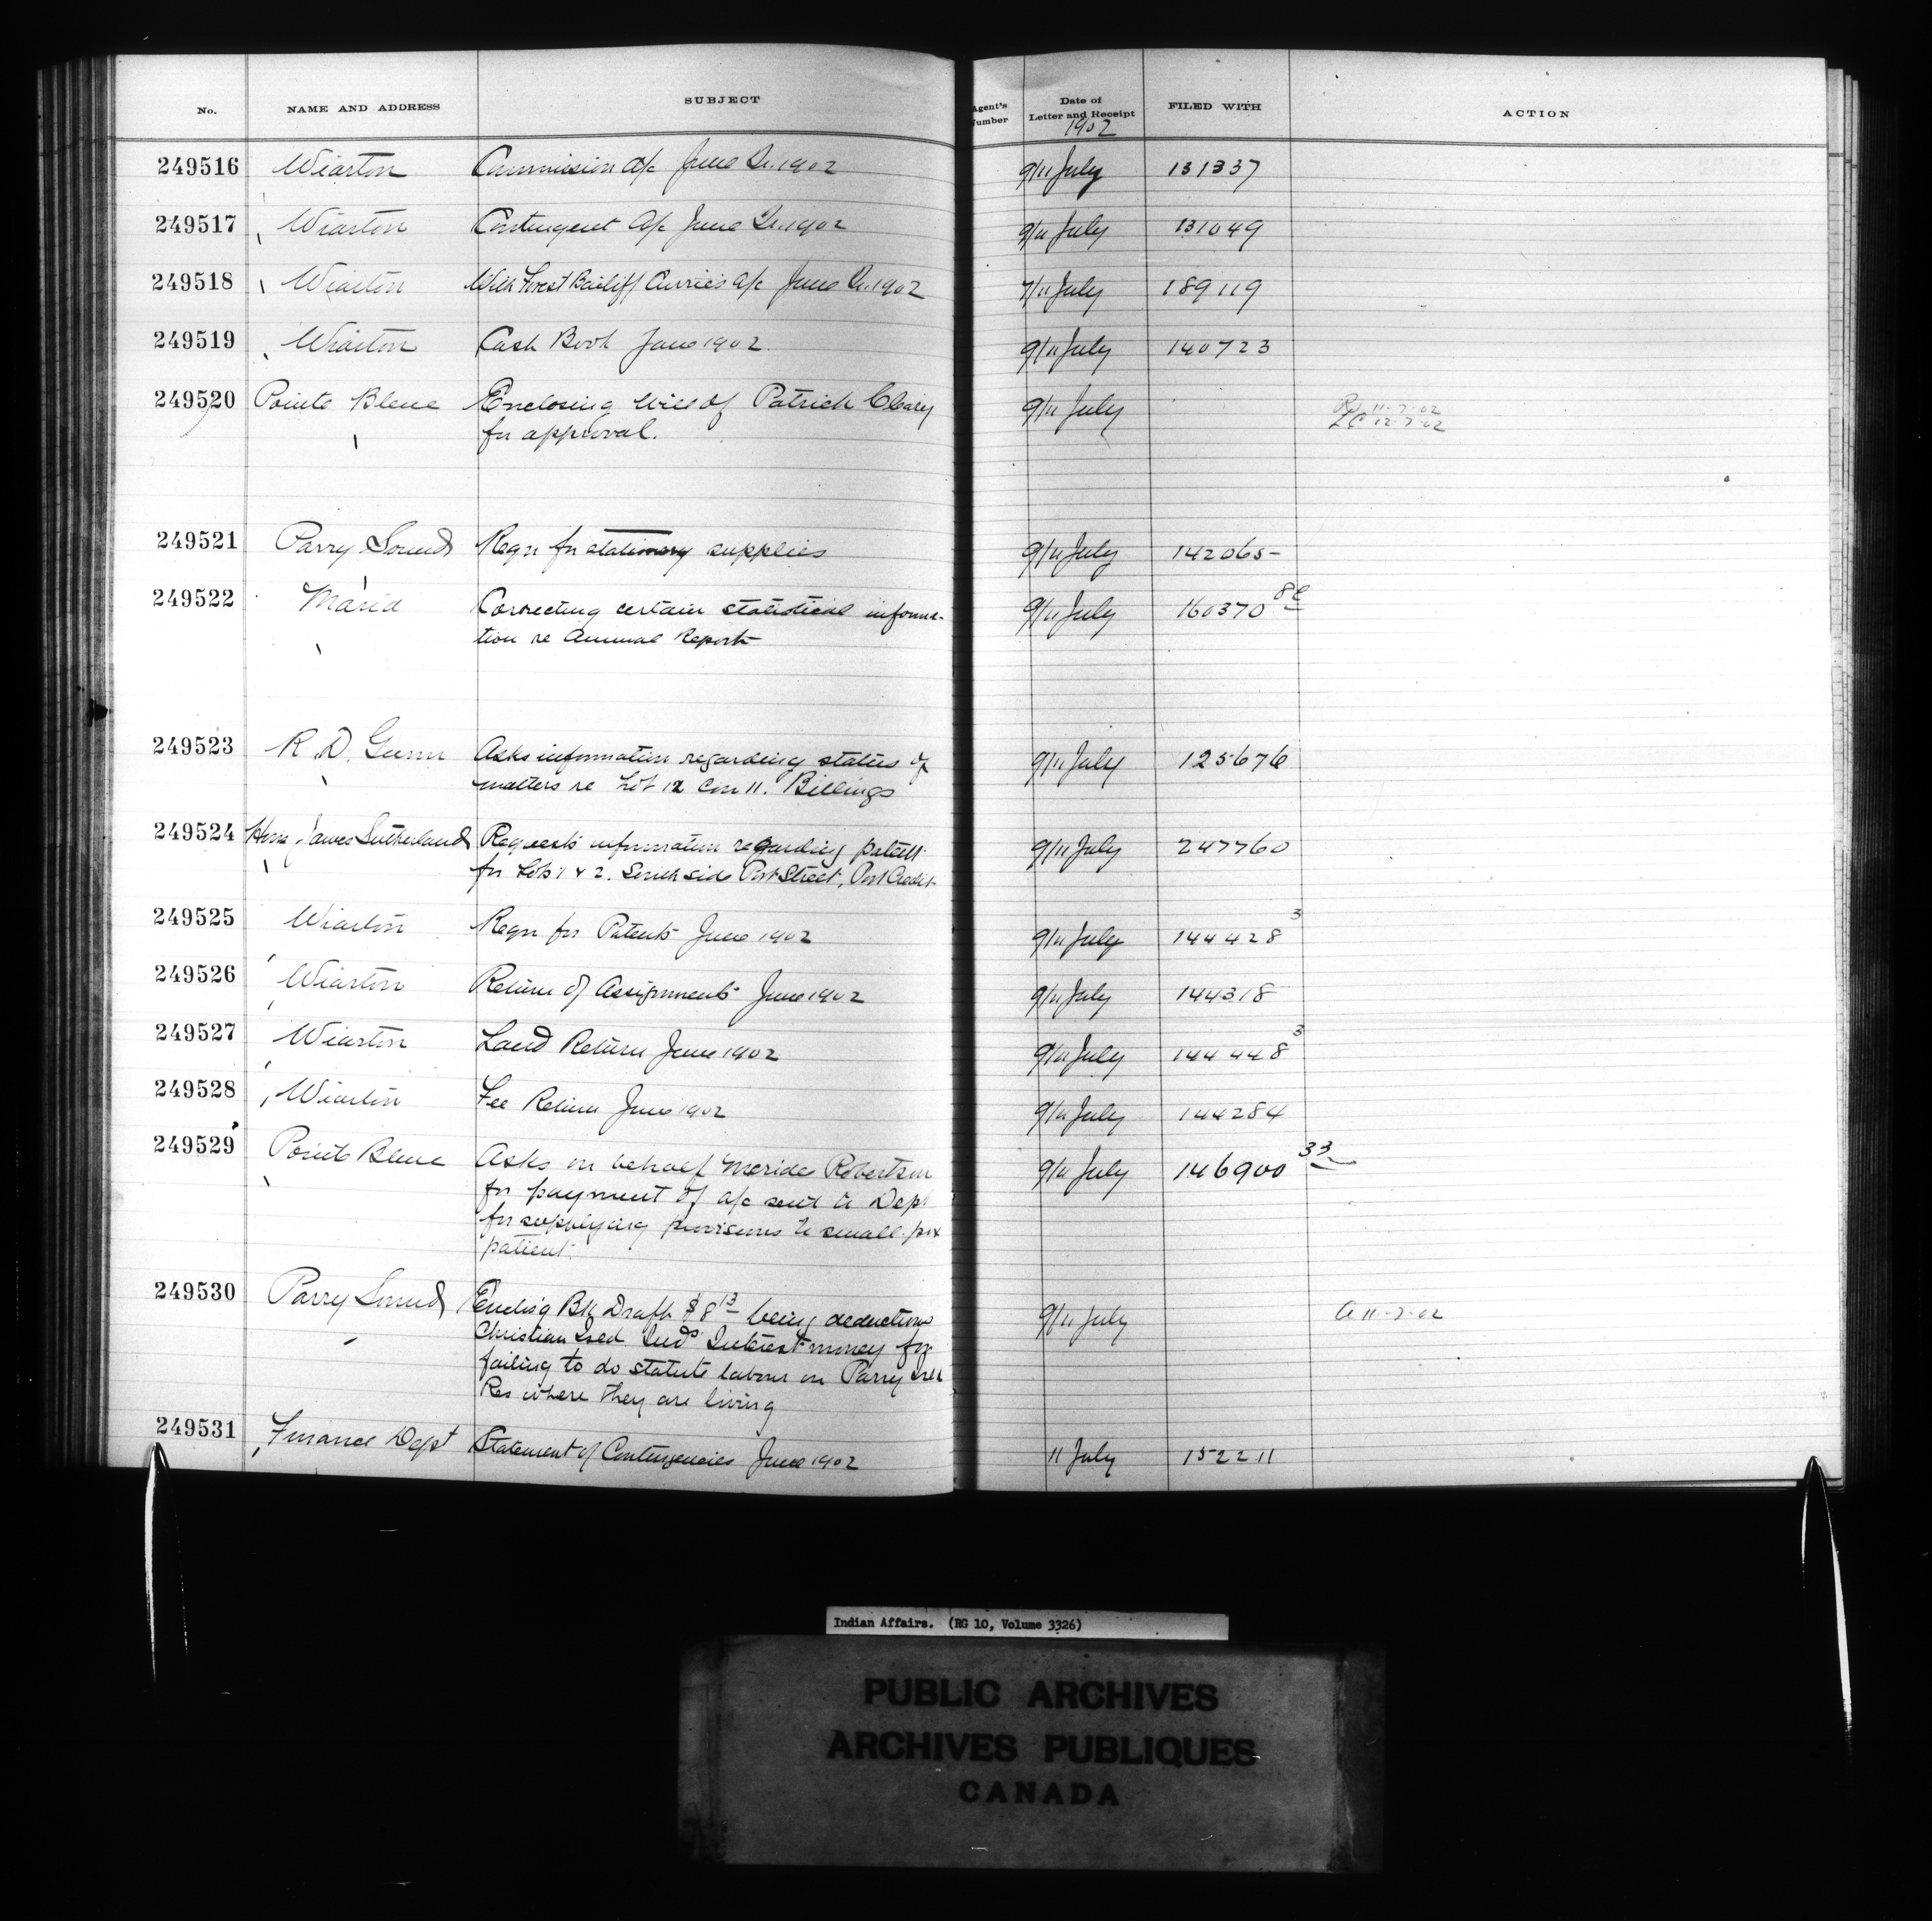 No. NAME AND ADDRESS SUBJECT Agent's Number Date of Letter and Receipt FILED WITH ACTION
1902
249516 Wiarton Commission a/c June Qr. 1902 9/11 July 131337
249517 Wiarton Contingent a/c June Qr. 1902 9/11 July 131049
249518 Wiarton With Forest Bailiff Currie's a/c June Qr. 1902 7/11 July 189119
249519 Wiarton Cash Book June 1902 9/11 July 140723
249520 Pointe Bleue Enclosing Will of Patrick Cleary 9/11 July 11-7-02
for approval. 12-7-02
249521 Parry Sound Reqn for stationery supplies 9/11 July 142065-
249522 Maria Correcting certain statistical informa- 9/11 July 160370
tion re Annual Report
249523 R. D. Gunn Asks information regarding status of 9/11 July 125676
matters re Lot 12 Con 11. Billings
249524 Hon James Sutherland Requests information regarding patent 9/11 July 247760
for Lots 1 & 2. South side Port Street, Port Credit
249525 Wiarton Reqn for Patents June 1902 9/11 July 144428 3
249526 Wiarton Return of Assignments June 1902 9/11 July 144318
249527 Wiarton Land Return June 1902 9/11 July 144448 3
249528 Wiarton Fee Return June 1902 9/11 July 144284
249529 Pointe Bleue Asks on behalf Meride Robertson 9/11 July 146900 33
for payment of a/c sent to Dept
for supplying provisions to small-pox
patient.
249530 Parry Sound Encl'g Bk Draft $8 13 being deductions 9/11 July A 11-7-02
Christian Isld Inds Interest money for
failing to do statute labour on Parry Isld
Res where they are living
249531 Finance Dept Statement of Contingencies June 1902 11 July 152211
Indian Affairs. (RG 10, Volume 3326)
PUBLIC ARCHIVES
ARCHIVES PUBLIQUES
CANADA